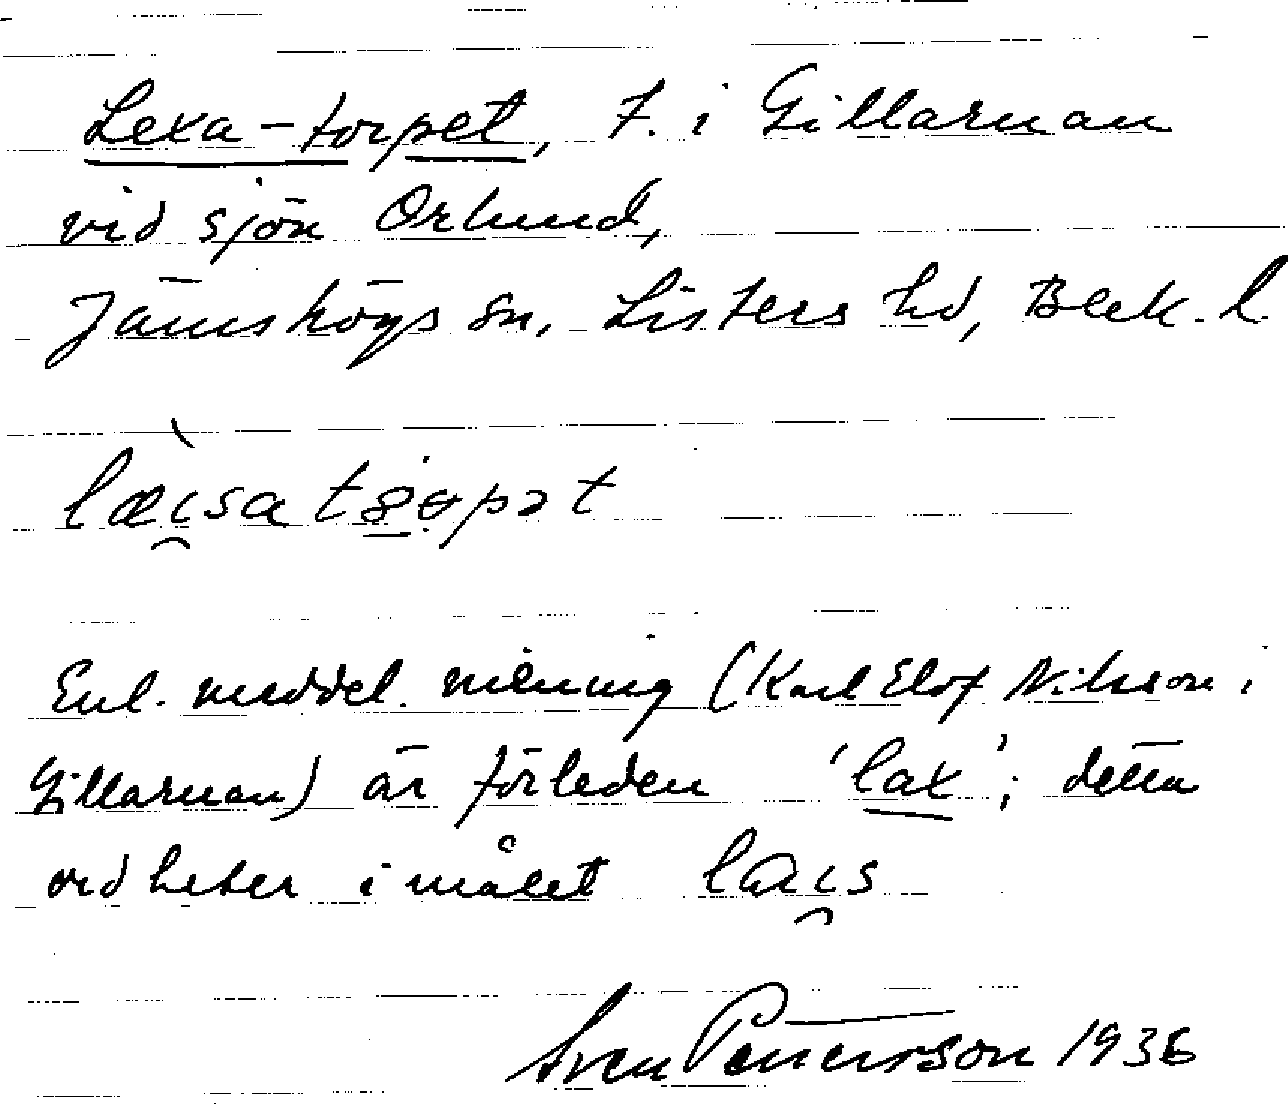 Lexa-torpet, T. i Gillarnan
vid sjön Orlund,
Jämshögs sn, Listers hd, Blek. l.
Enl. meddel. mening (Karl Elof Nilsson i
Gillarnan) är förleden 'lax'; detta
ord heter i målet
Sven Petersson 1936